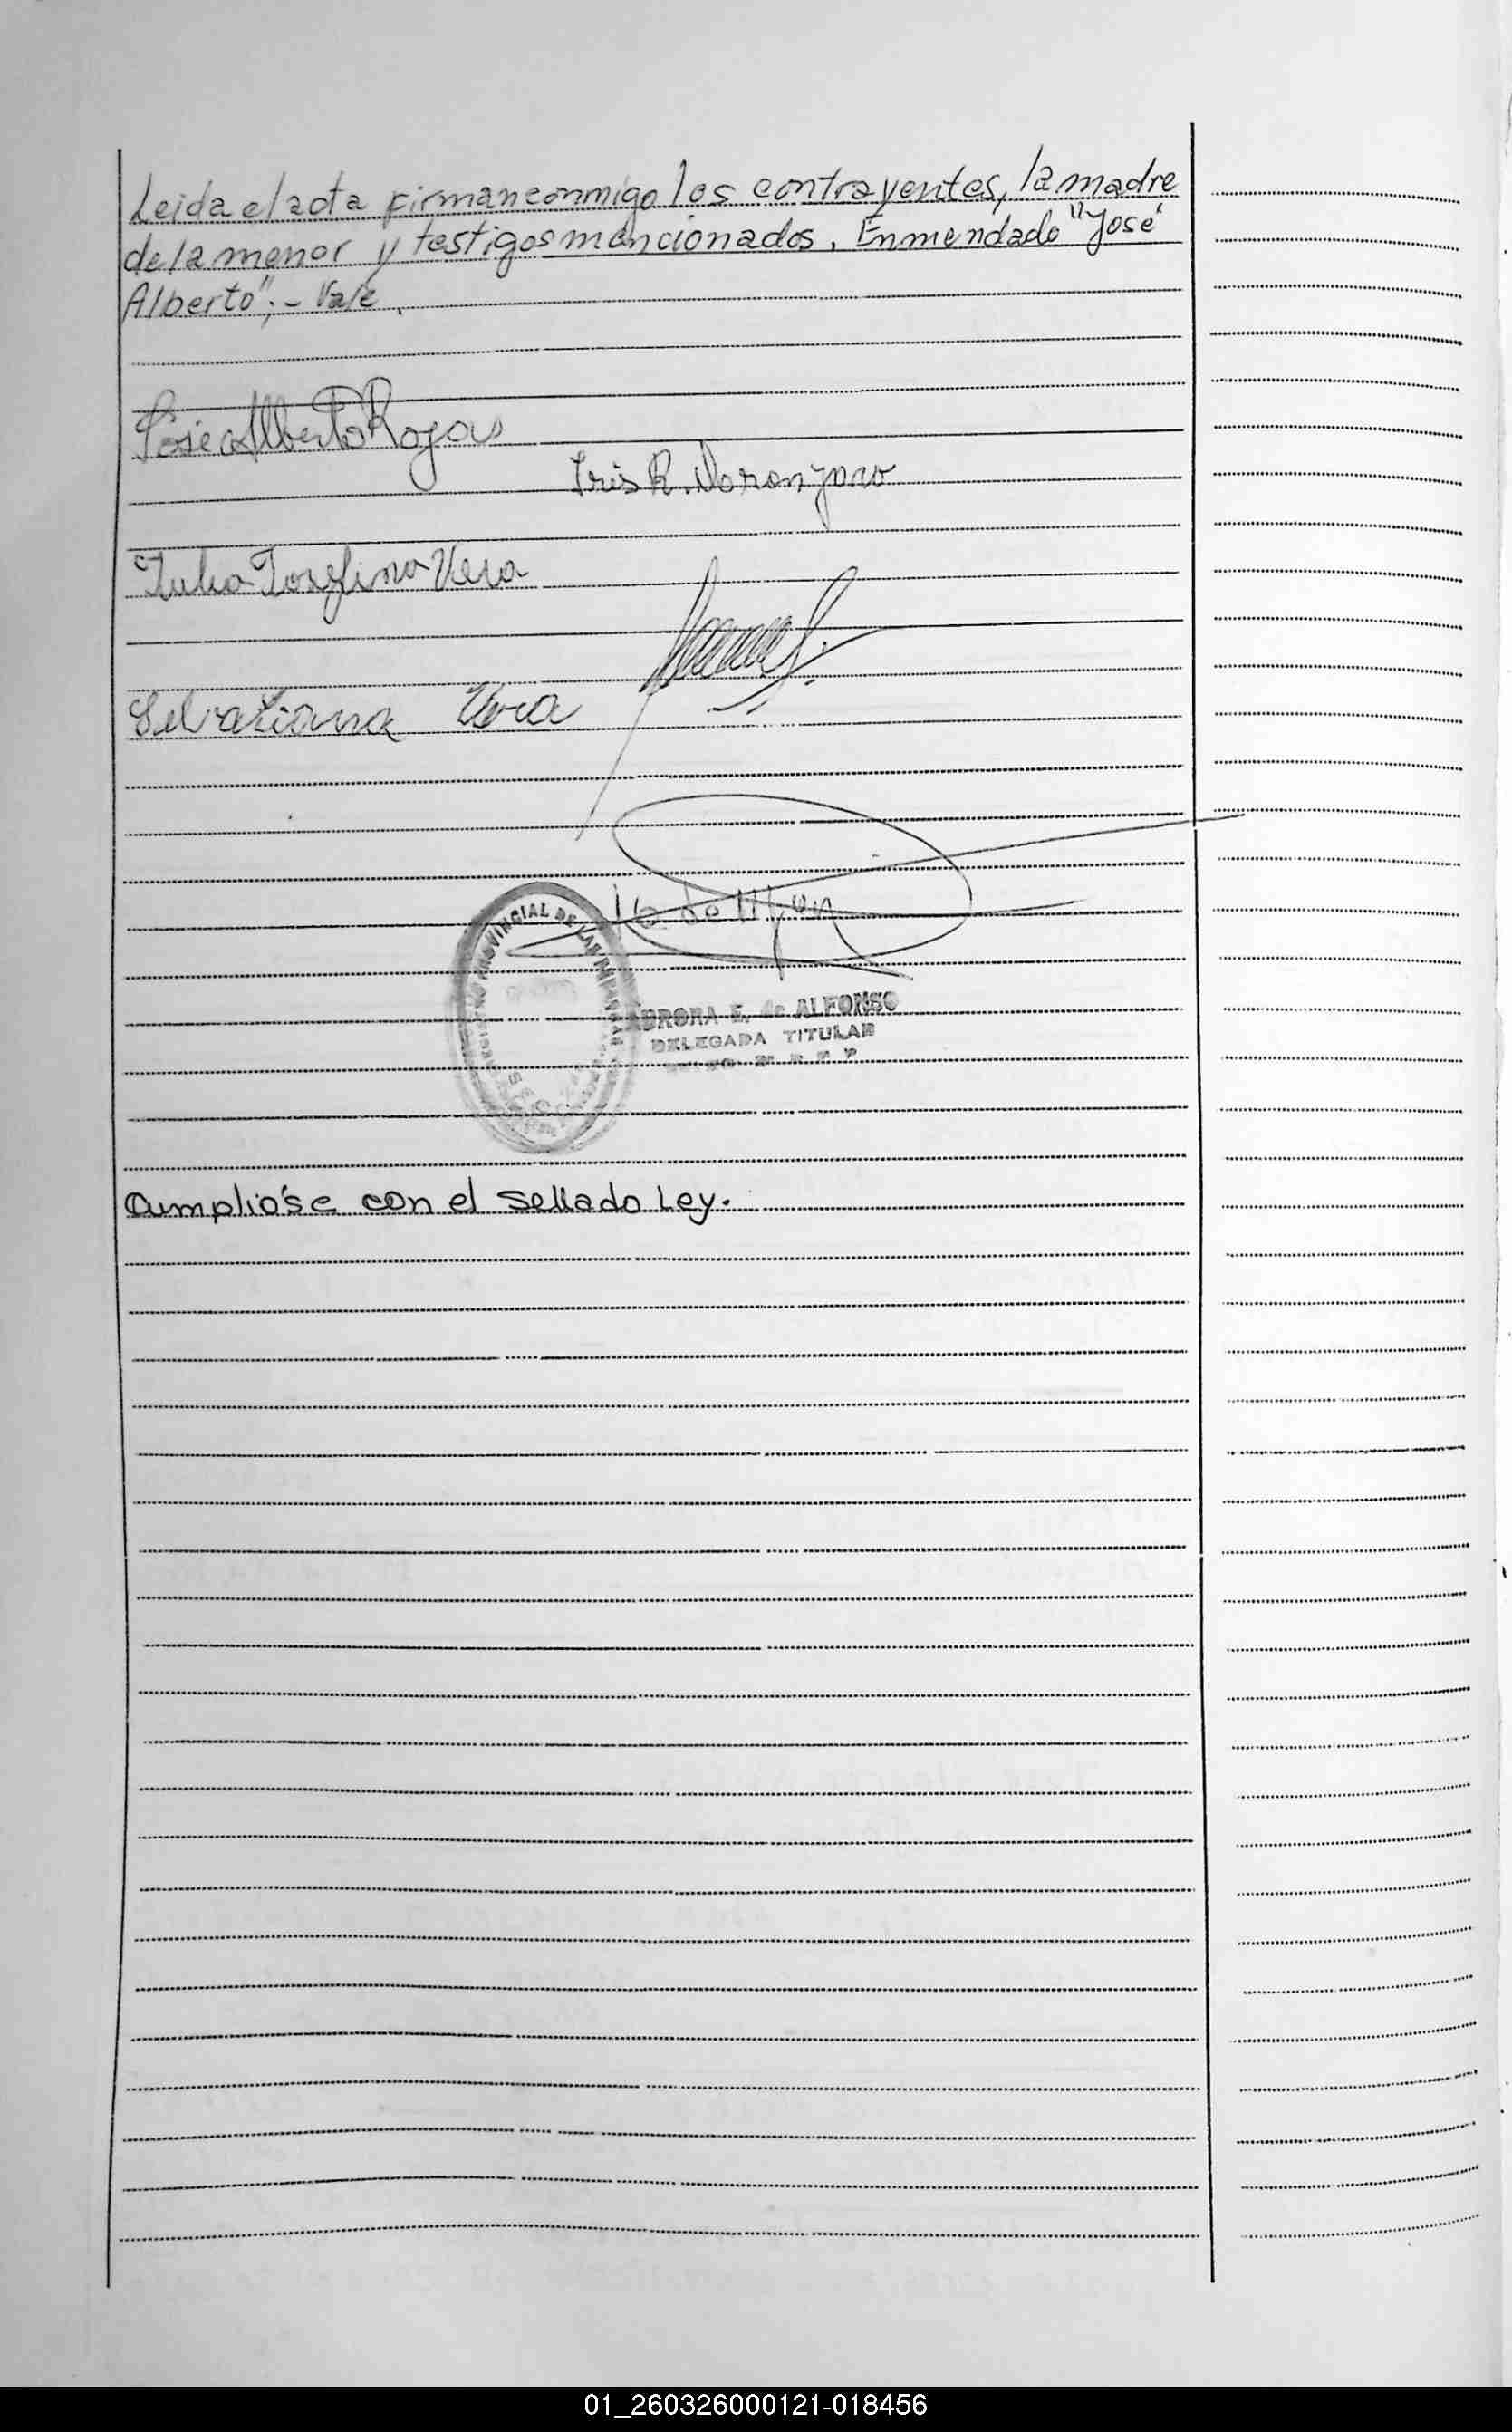 Leida el acta firman conmigo los contrayentes, la madre
de la menor y testigos mencionados. Enmendado "José
Alberto";- Vale.
José Alberto Rojas
Iris R. Naranjaro
Julia Josefina Vera
Selva Liana Vera
PROVINCIAL DE LAS PERSONAS
AURORA E. de ALFONSO
DELEGADA TITULAR
Cumplióse con el sellado Ley.
01_260326000121-018456